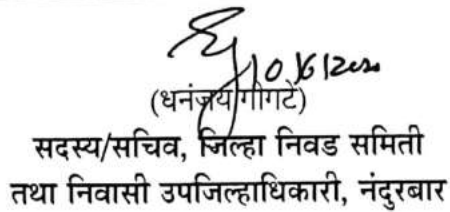 (धनंजय गोगटे)
सदस्य/सचिव, जिल्हा निवड समिती
तथा निवासी उपजिल्हाधिकारी, नंदुरबार